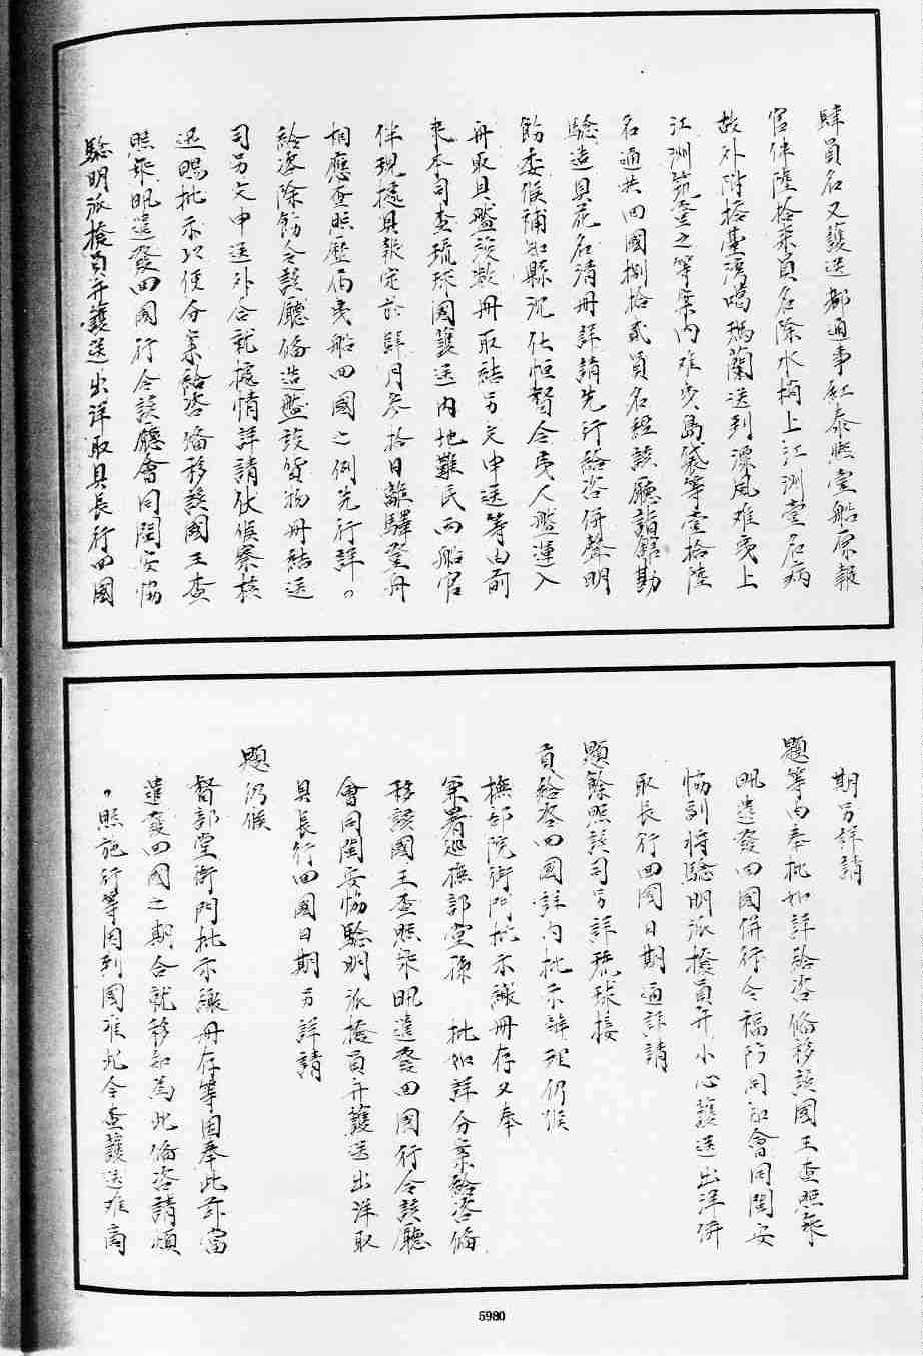 肆員名又護送都通事紅泰熙壹船原報
官伴陸拾柒員名除水梢上江洲壹名病
故外附搭臺灣噶瑪蘭送到漂風难夷上
江洲筑登之等案內难夷島袋等壹拾陸
名通共四國捌拾貳員名經該廳詣舘勘
驗造具花名清冊詳請先行給咨併聲明
飭委候補知縣沉仕恒督令夷人艦運入
舟取具艦該數冊取結另文申送等由前
来本司查琉球國護送內地難民两船官
伴現據具報定於肆月叁拾日離驛登舟
相應查照歷届夷船四國之例先行詳。
給咨除飭令該廳俻造艦該貨物冊結送
司另文申送外合就據情詳請伏候察核
迅賜批示以便分案給咨俻移該國王查
照飛帆遣發四國行令該廳會同閩安協
驗明派撥員弁護送出洋取具長行四國
期另詳請
題等由奉批如詳給咨俻移該國王查照飛
帆遣發四國併行令福防同知會同閩安
協副將驗明派撥員弁小心護送出洋併
取長行四國日期通詳請
題餘照該司另詳琉球接
貢給咨四國詳內批示辦理仍候
撫部院衙門批示繳冊存又奉
兼署巡撫部堂孫 批如詳分案給咨俻
移該國王查照飛帆遣發四國行令該廳
會同閩安協驗明派撥員弁護送出洋取
具長行四國日期另詳請
題仍候
督部堂衙門批示繳冊存等因奉此茲當
遣發四國之期合就移知為此俻咨請煩
，照施行等因到國准此今查護送难商
5980